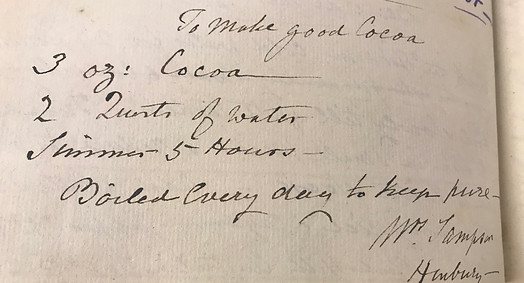 To Make good Cocoa
3 oz: Cocoa
2 Quarts of water
Simmer 5 Hours –
Boiled Every day to keep pure –
Mrs Sampson
Henbury –